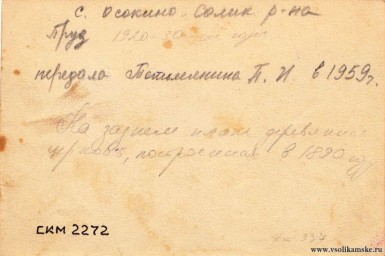 с. Осокино Солик. р-на
Пруд 1920-30
передала Потимянкина П. И. в 1959 г.
На заднем плане деревянная
церковь, построенная в 1890 году
СКМ 2272
www.vsolikamske.ru